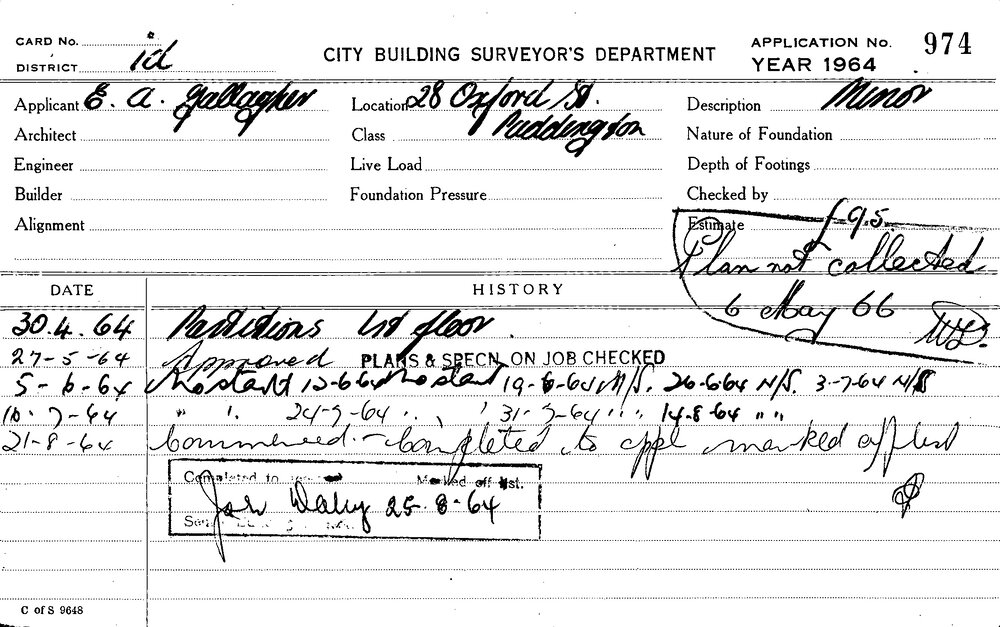 CARD No. CITY BUILDING SURVEYOR'S DEPARTMENT APPLICATION No. 974
DISTRICT id YEAR 1964
Applicant E. A. Gallagher Location 28 Oxford St. Description Minor
Architect Class Paddington Nature of Foundation
Engineer Live Load Depth of Footings
Builder Foundation Pressure Checked by
Alignment Estimate
Plan not collected
6 May 66
DATE HISTORY
30.4.64 Partitions 1st floor.
27-5-64 Approved PLANS & SPECN. ON JOB CHECKED
5-6-64 No start 12-6-64 No start 19-6-64 N/S. 26-6-64 N/S. 3-7-64 N/S
10-7-64 " " 24-7-64 " " 31-7-64 " " 14-8-64 " "
21-8-64 Commenced - Completed to appl marked off list
Completed to Marked off list.
25-8-64
C of S 9648